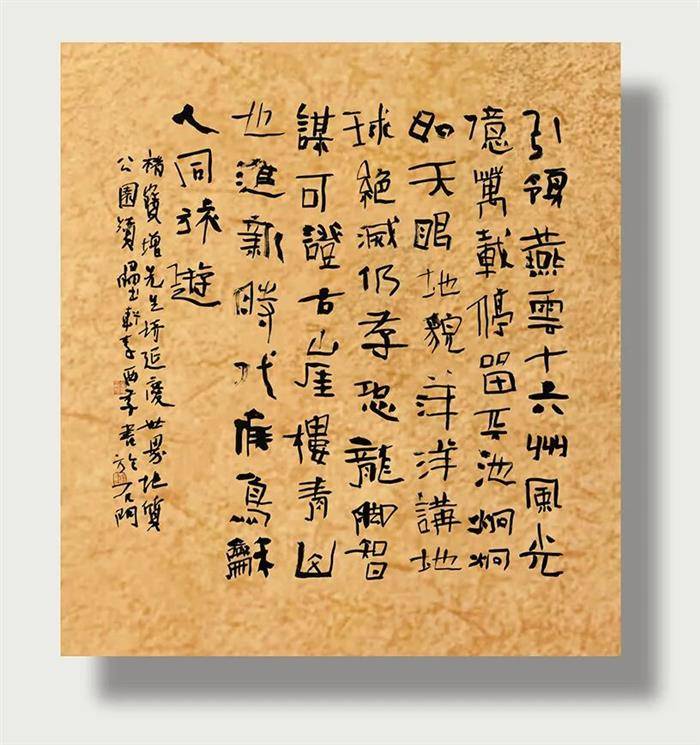 引領燕雲十六州風光
億萬載停留池炯炯
如天眼地貌洋洋講地
球絕滅仍存恐龍腳智
謀可證古崖樓青山
也進新時代鳥龢
人同旅遊
褚寶增先生詩延慶世界地質
公園軒李西書於石門